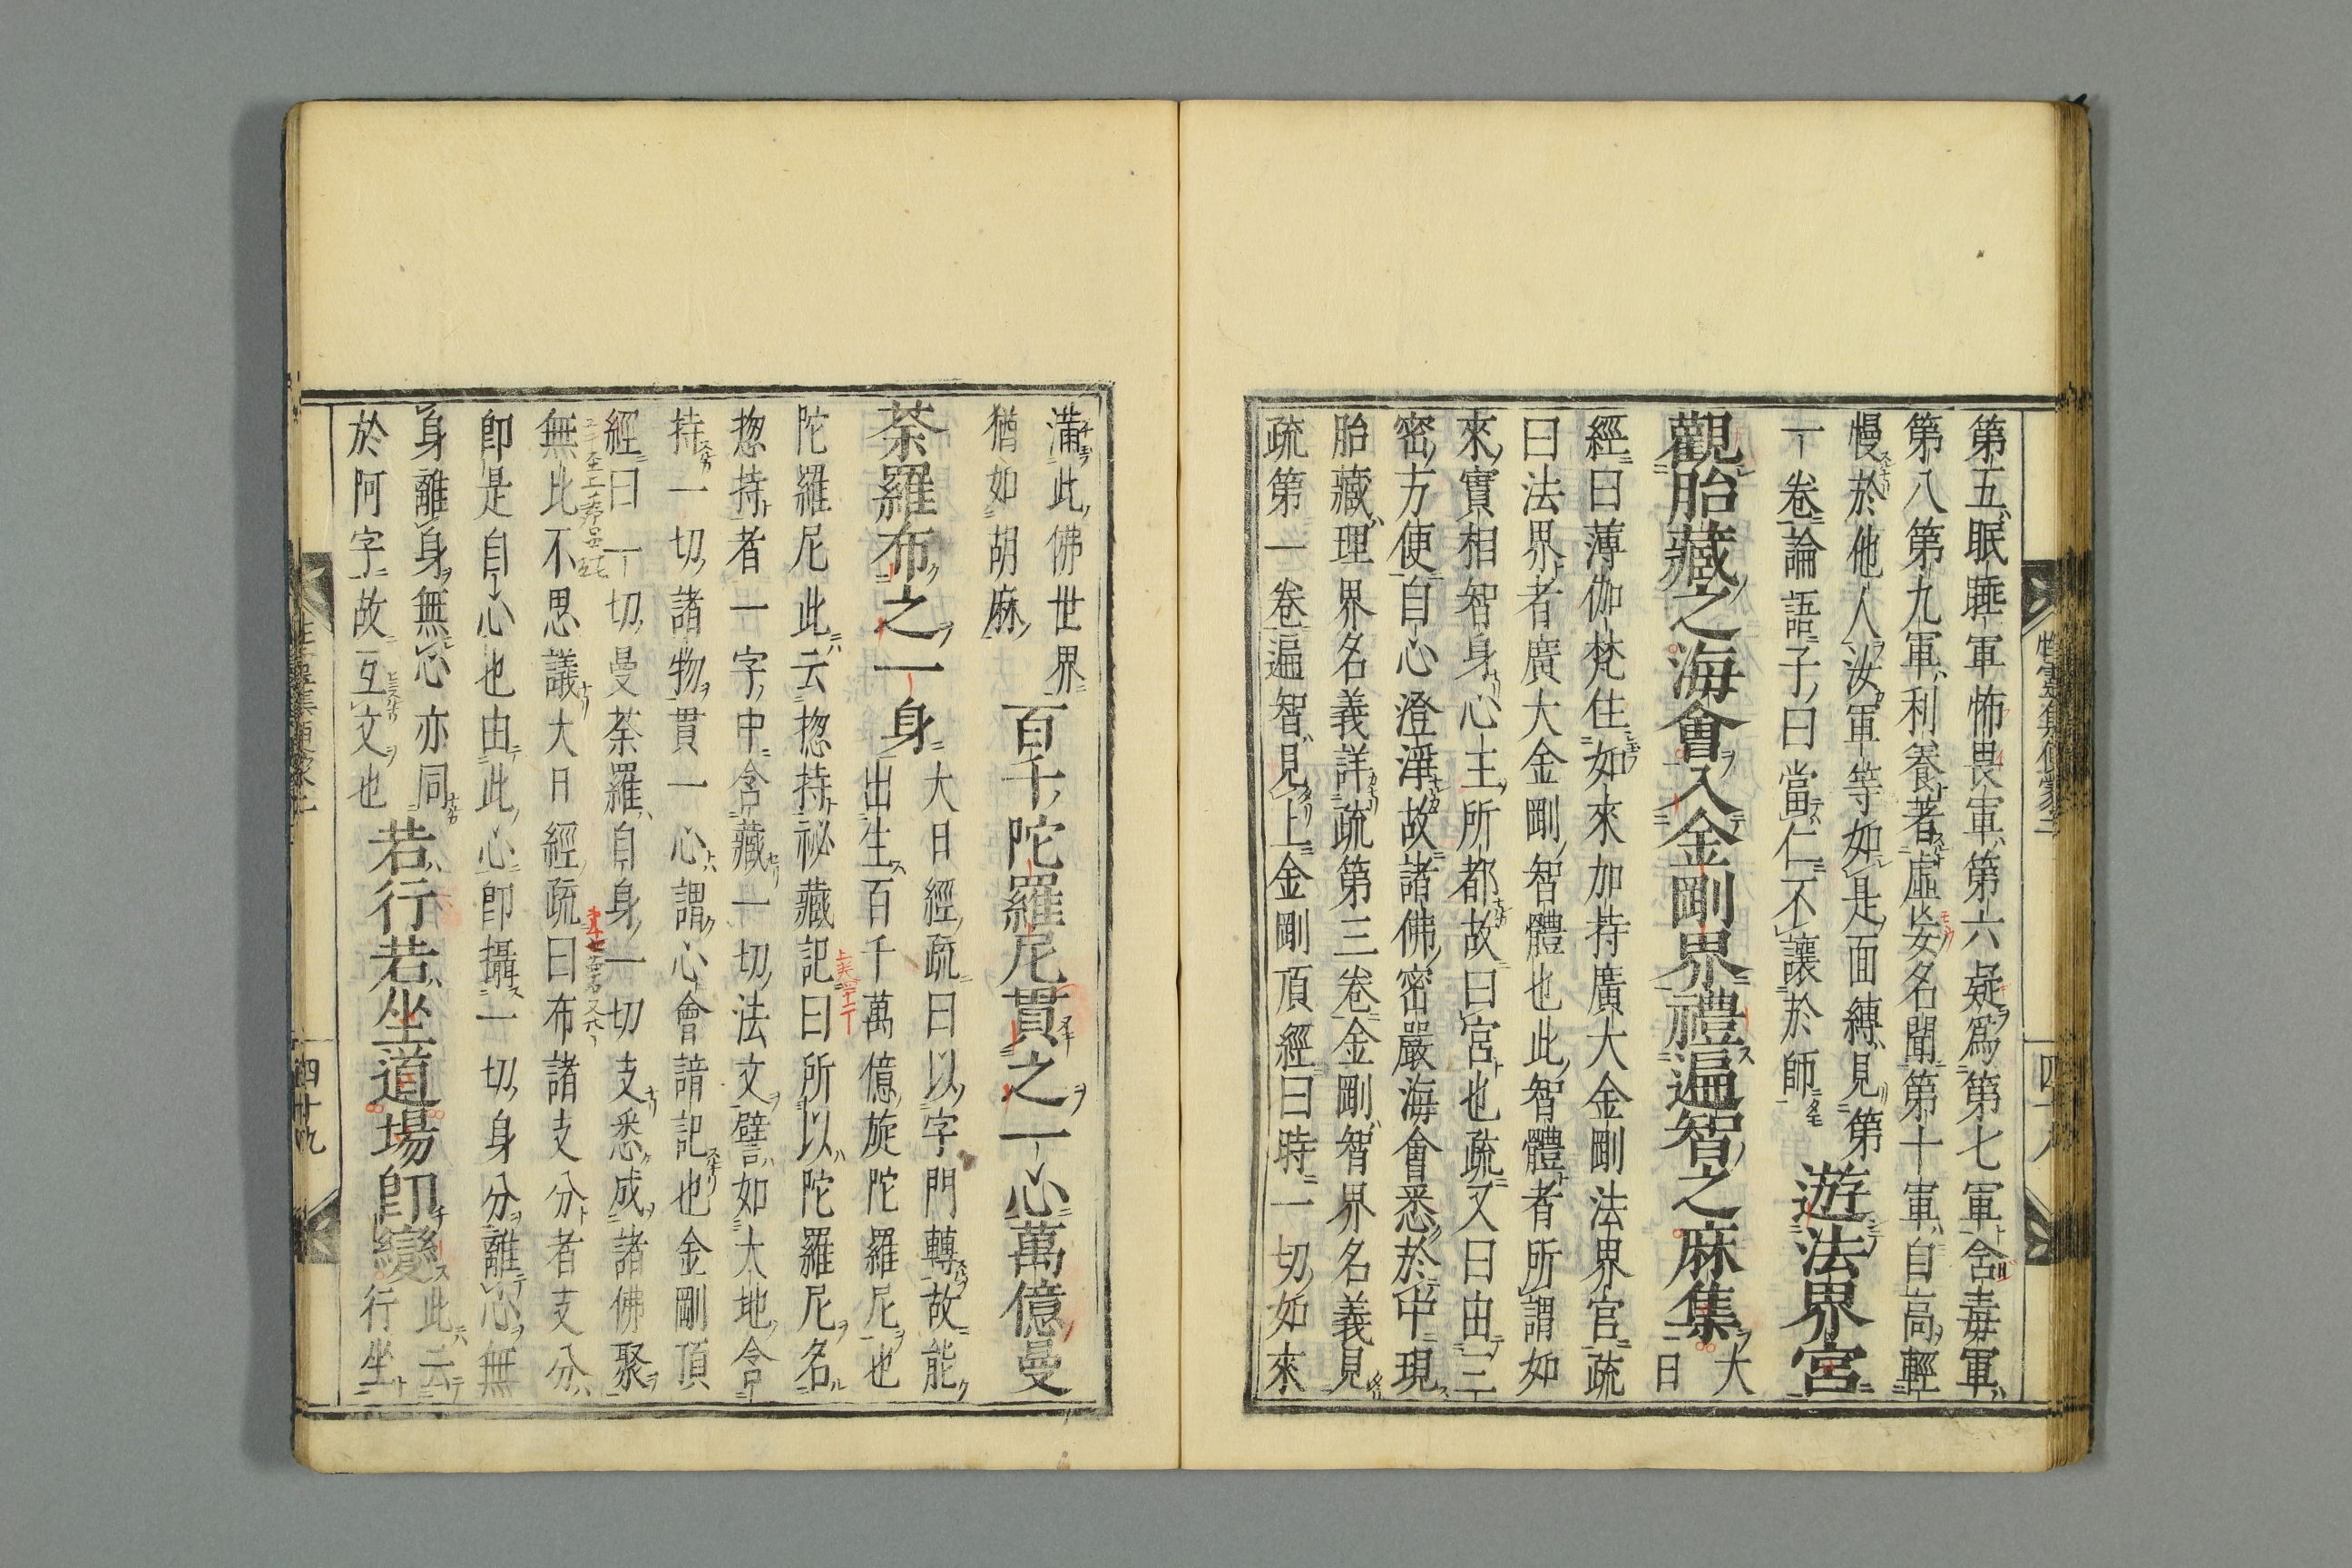 第五眠睡軍怖畏軍第六疑爲第七軍含毒軍
第八第九軍利養著虛妄名聞第十軍自高輕
慢於他人汝軍等如是面縛見第
一卷論語子曰當仁不讓於師遊法界宮
觀胎藏之海會入金剛界禮遍智之麻集大日
經曰薄伽梵住如來加持廣大金剛法界宮疏
曰法界者廣大金剛智體也此智體者所謂如
來實相智身心主所都故曰宮也疏又曰由三
密方便自心澄淨故諸佛密嚴海會悉於中現
胎藏理界名義詳疏第三卷金剛智界名義見
疏第一卷遍智見上金剛頂經曰時一切如來
滿此佛世界
猶如胡麻百千陀羅尼貫之一心萬億曼
荼羅布之一身大日經疏曰以字門轉故能
出生百千萬億旋陀羅尼也
陀羅尼此云揔持祕藏記曰所以陀羅尼名
揔持者一字中含藏一切法文譬如大地含
持一切諸物貫一心謂心會諳記也金剛頂
經曰一切曼荼羅自身一切支悉成諸佛聚
無比不思議大日經疏曰布諸支分者支分
即是自心也由此心即攝一切身分離心無
身離身無心亦同
於阿字故互文也若行若坐道場即變此云
行坐
四十九